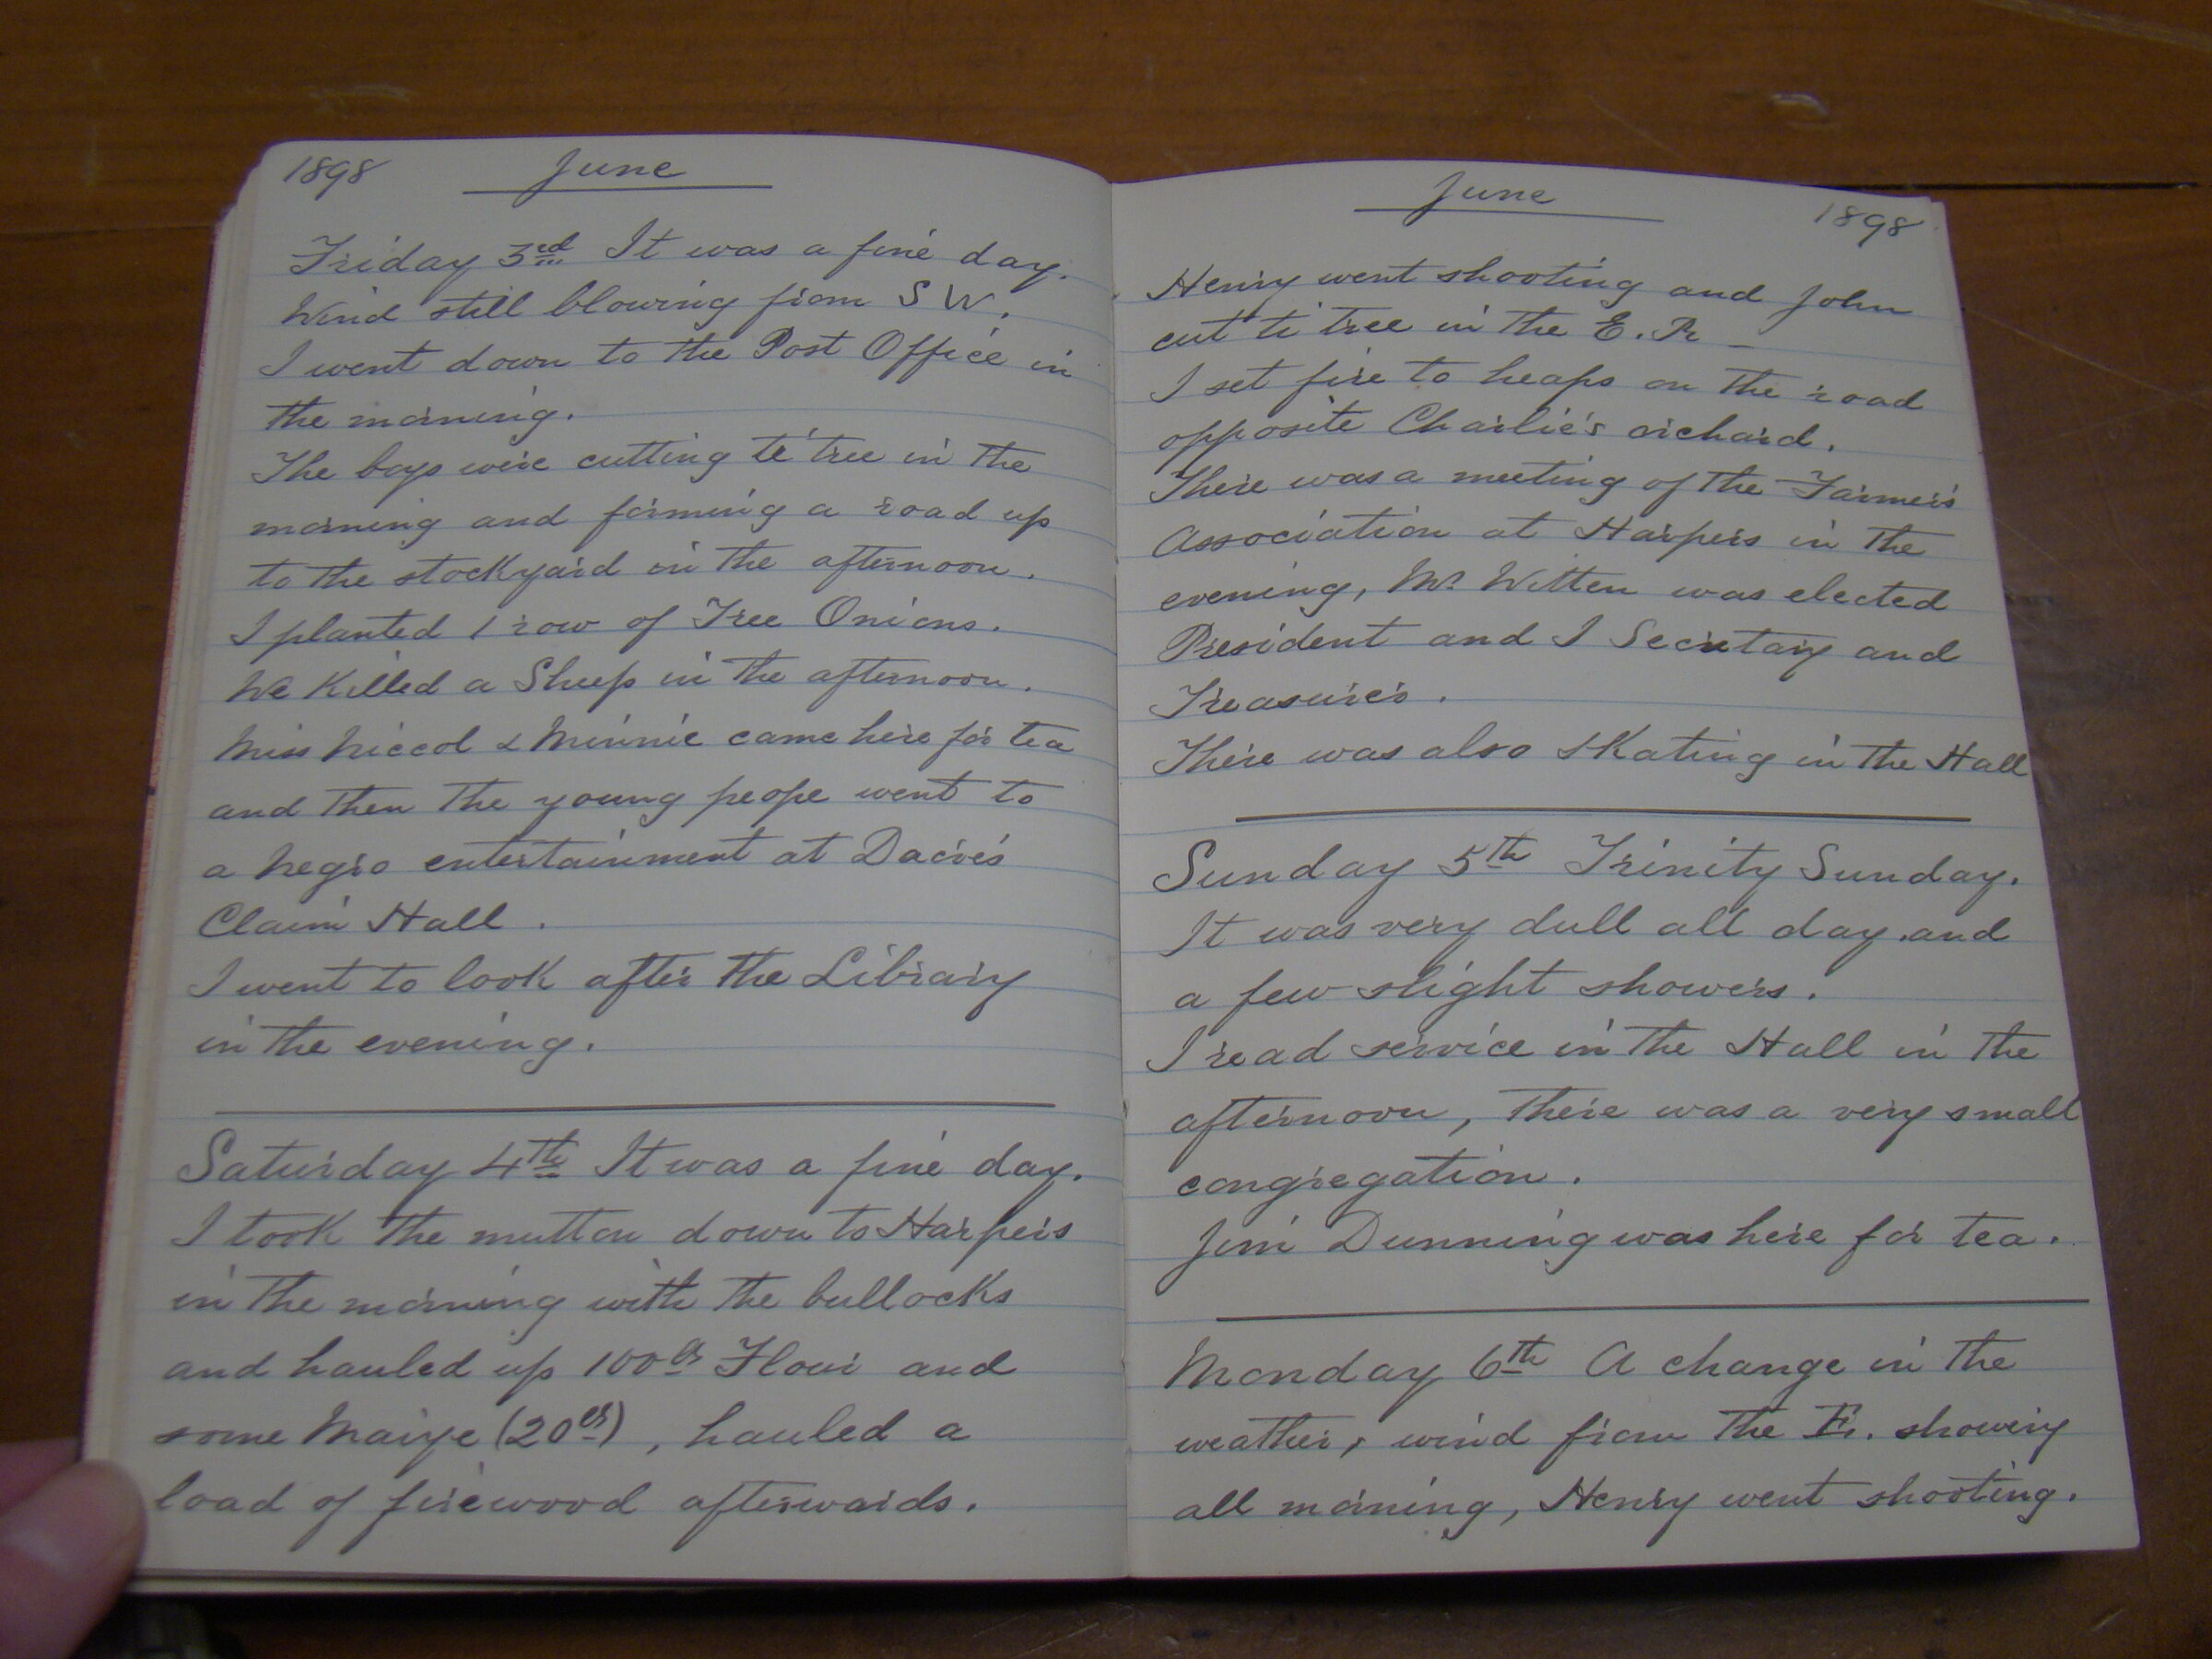 1898 June
Friday 3rd It was a fine day.
Wind still blowing from S W.
I went down to the Post Office in
the morning.
The boys were cutting te tree in the
morning and forming a road up
to the stockyard in the afternoon.
I planted 1 row of Tree Onions.
We Killed a Sheep in the afternoon.
Miss Niccol & Minnie came here for tea
and then the young peope went to
a negro entertainment at Dacre's
Claim Hall.
I went to look after the Library
in the evening.
Saturday 4th It was a fine day.
I took the mutton down to Harpers
in the morning with the bullocks
and hauled up 100 lbs Flour and
some Maize (20 lbs), hauled a
load of firewood afterwards.
June 1898
Henry went shooting and John
cut ti tree in the E. R _
I set fire to heaps on the road
opposite Charlie's orchard.
There was a meeting of the Farmers
Association at Harpers in the
evening, Mr Witten was elected
President and I Secretary and
Treasurer.
There was also skating in the Hall
Sunday 5th Trinity Sunday.
It was very dull all day and
a few slight showers.
I read service in the Hall in the
afternoon, there was a very small
congregation.
Jim Dunning was here for tea.
Monday 6th A change in the
weather, wind from the E. showery
all morning, Henry went shooting.